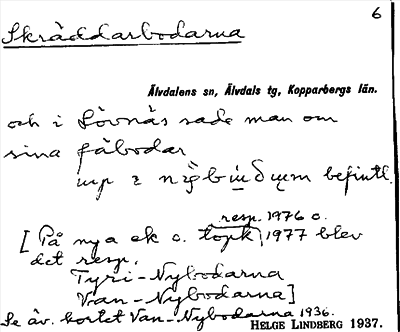 6
Skräddarbodarna
Älvdalens sn, Älvdals tg, Kopparbergs län.
och i Lövnäs sade man om
sina fäbodar
befintl.
resp. 1976 o.
[På nya ek o. topk 1977 blev
det resp.
Tyri-Nybodarna
Van-Nybodarna]
Se äv. kortet Van-Nybodarna 1936.
HELGE LINDBERG 1937.